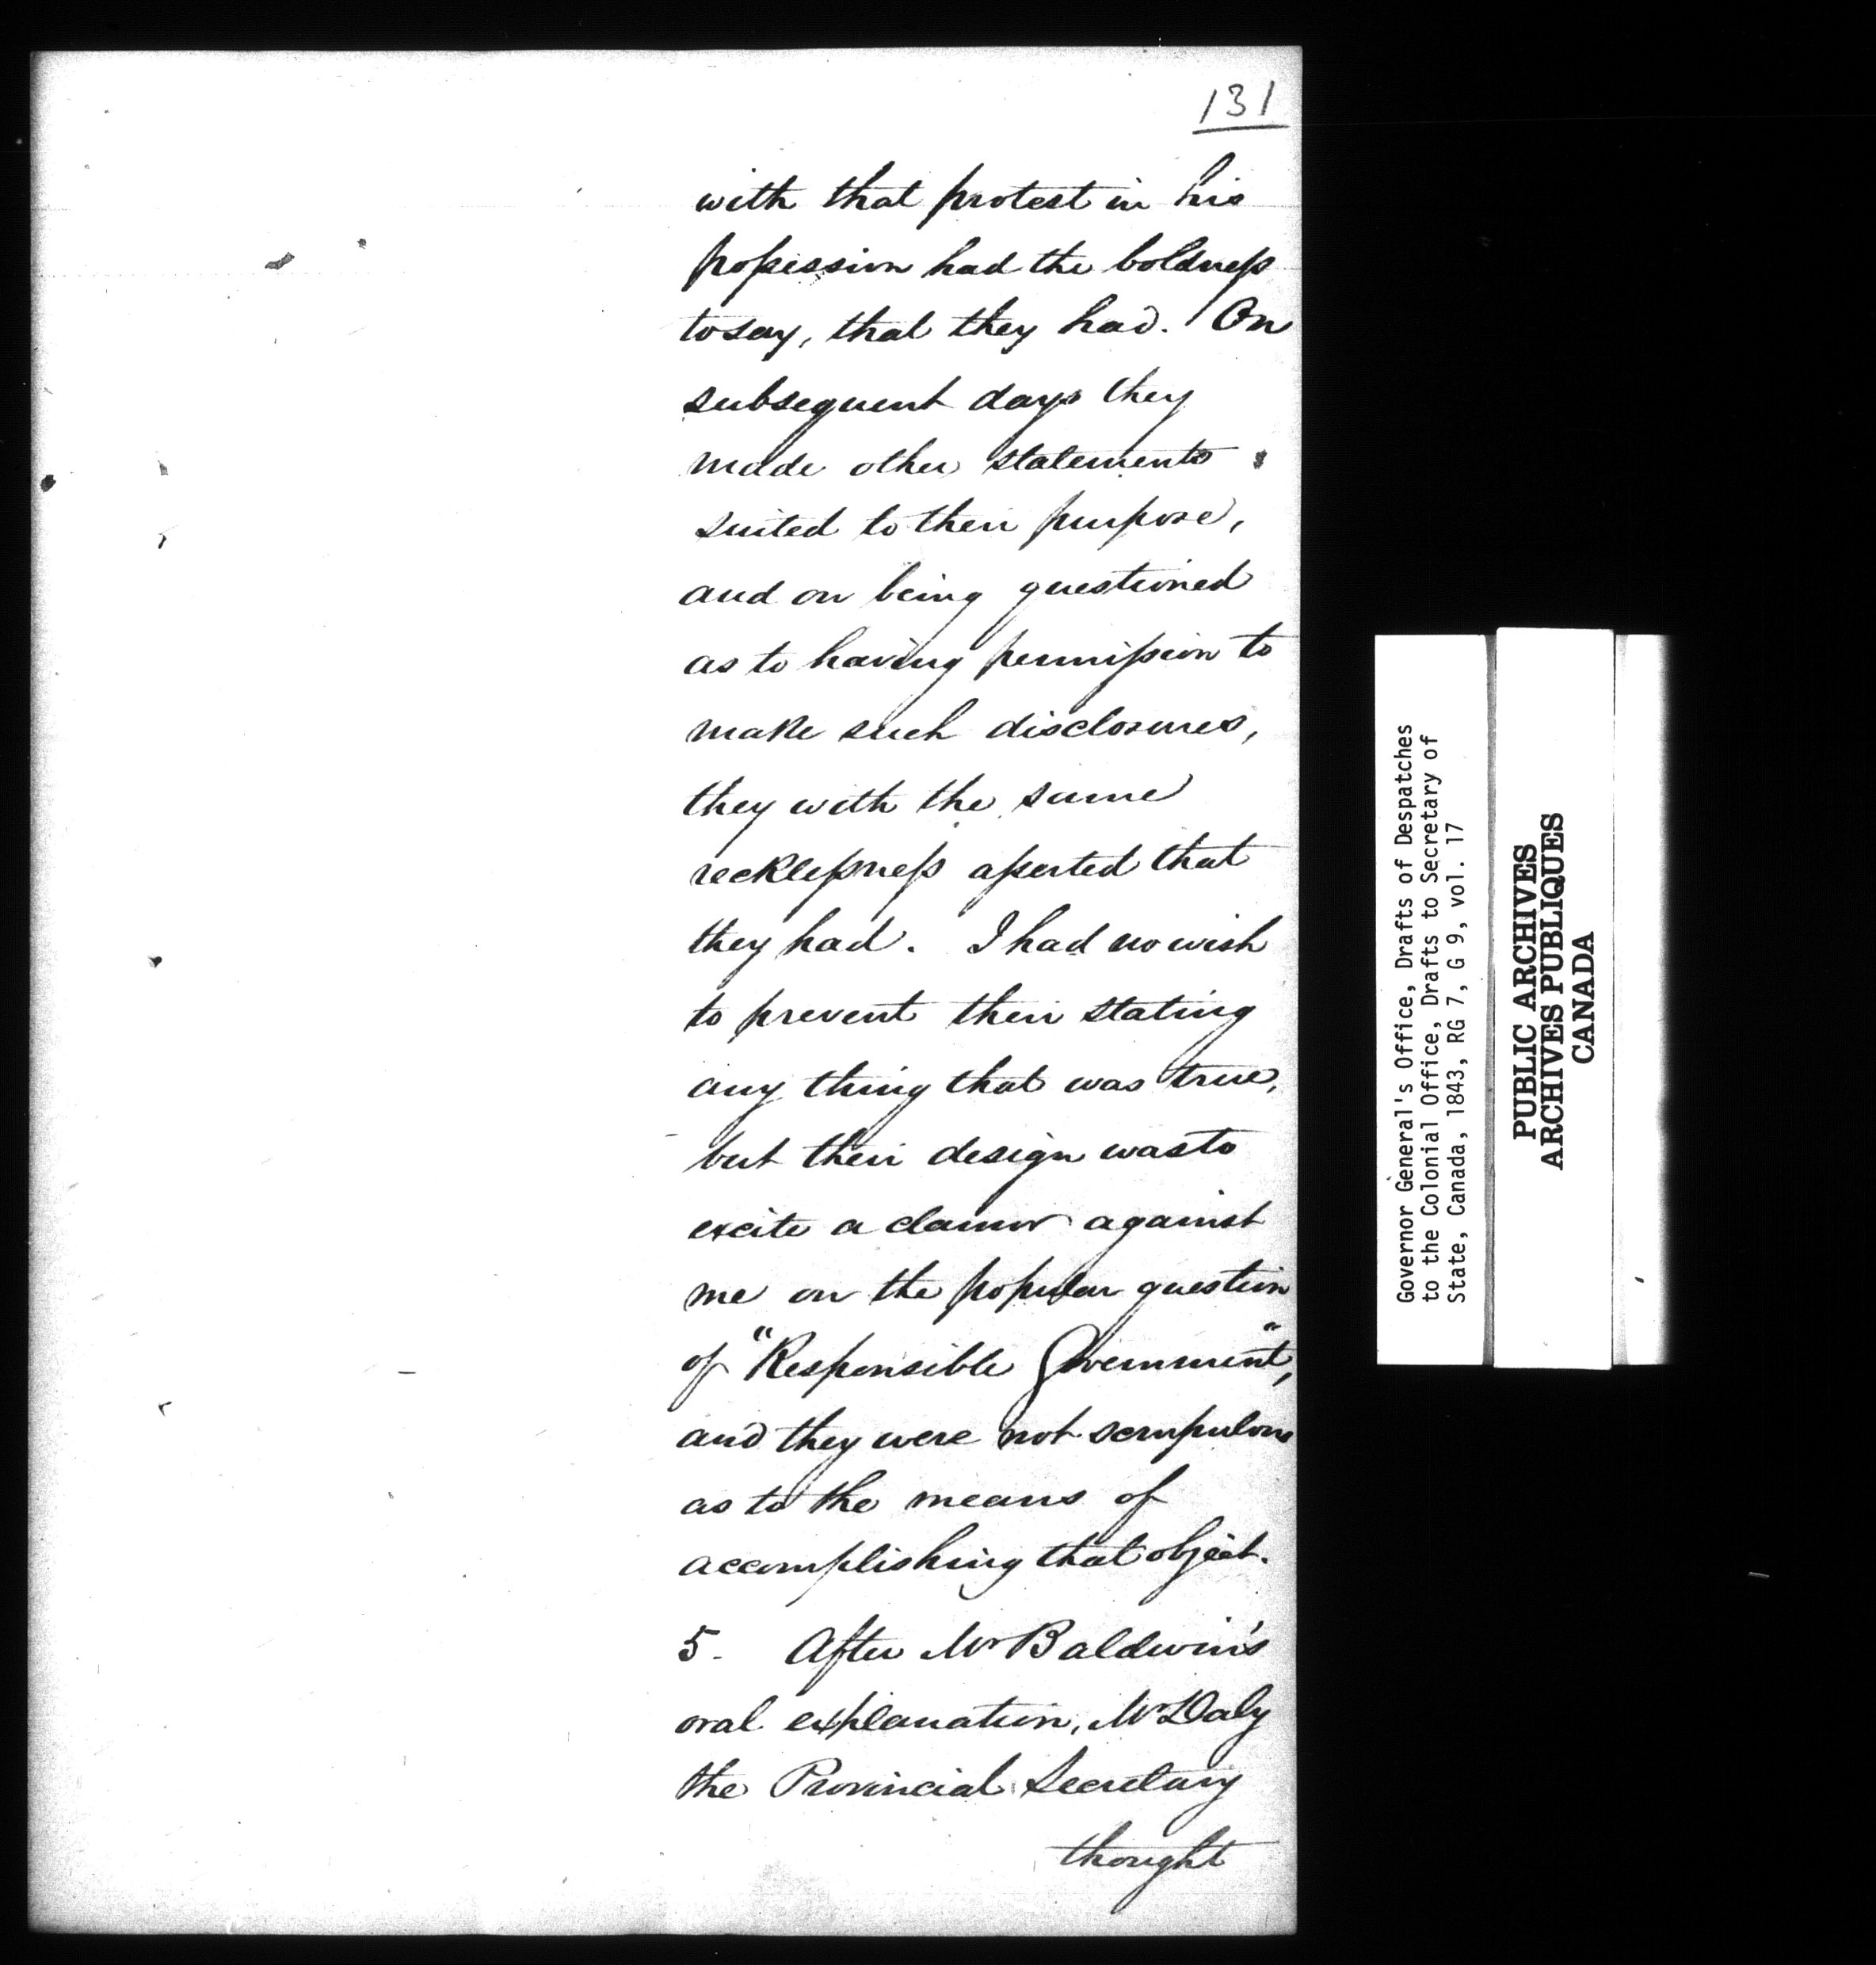 131
with that protest in his
possession had the boldness
to say, that they had. On
subsequent days they
made other statements
suited to their purpose,
and on being questioned
as to having permission to
make such disclosures,
they with the same
recklessness asserted that
they had. I had no wish
to prevent their stating
any thing that was true,
but their design was to
excite a clamor against
me on the popular question
of "Responsible Government",
and they were not scrupulous
as to the means of
accomplishing that object.
5. After Mr Baldwin's
oral explanation, Mr Daly
the Provincial Secretary
thought
Governor General's Office, Drafts of Despatches
to the Colonial Office, Drafts to Secretary of
State, Canada, 1843, RG 7, G 9, vol. 17
PUBLIC ARCHIVES
ARCHIVES PUBLIQUES
CANADA